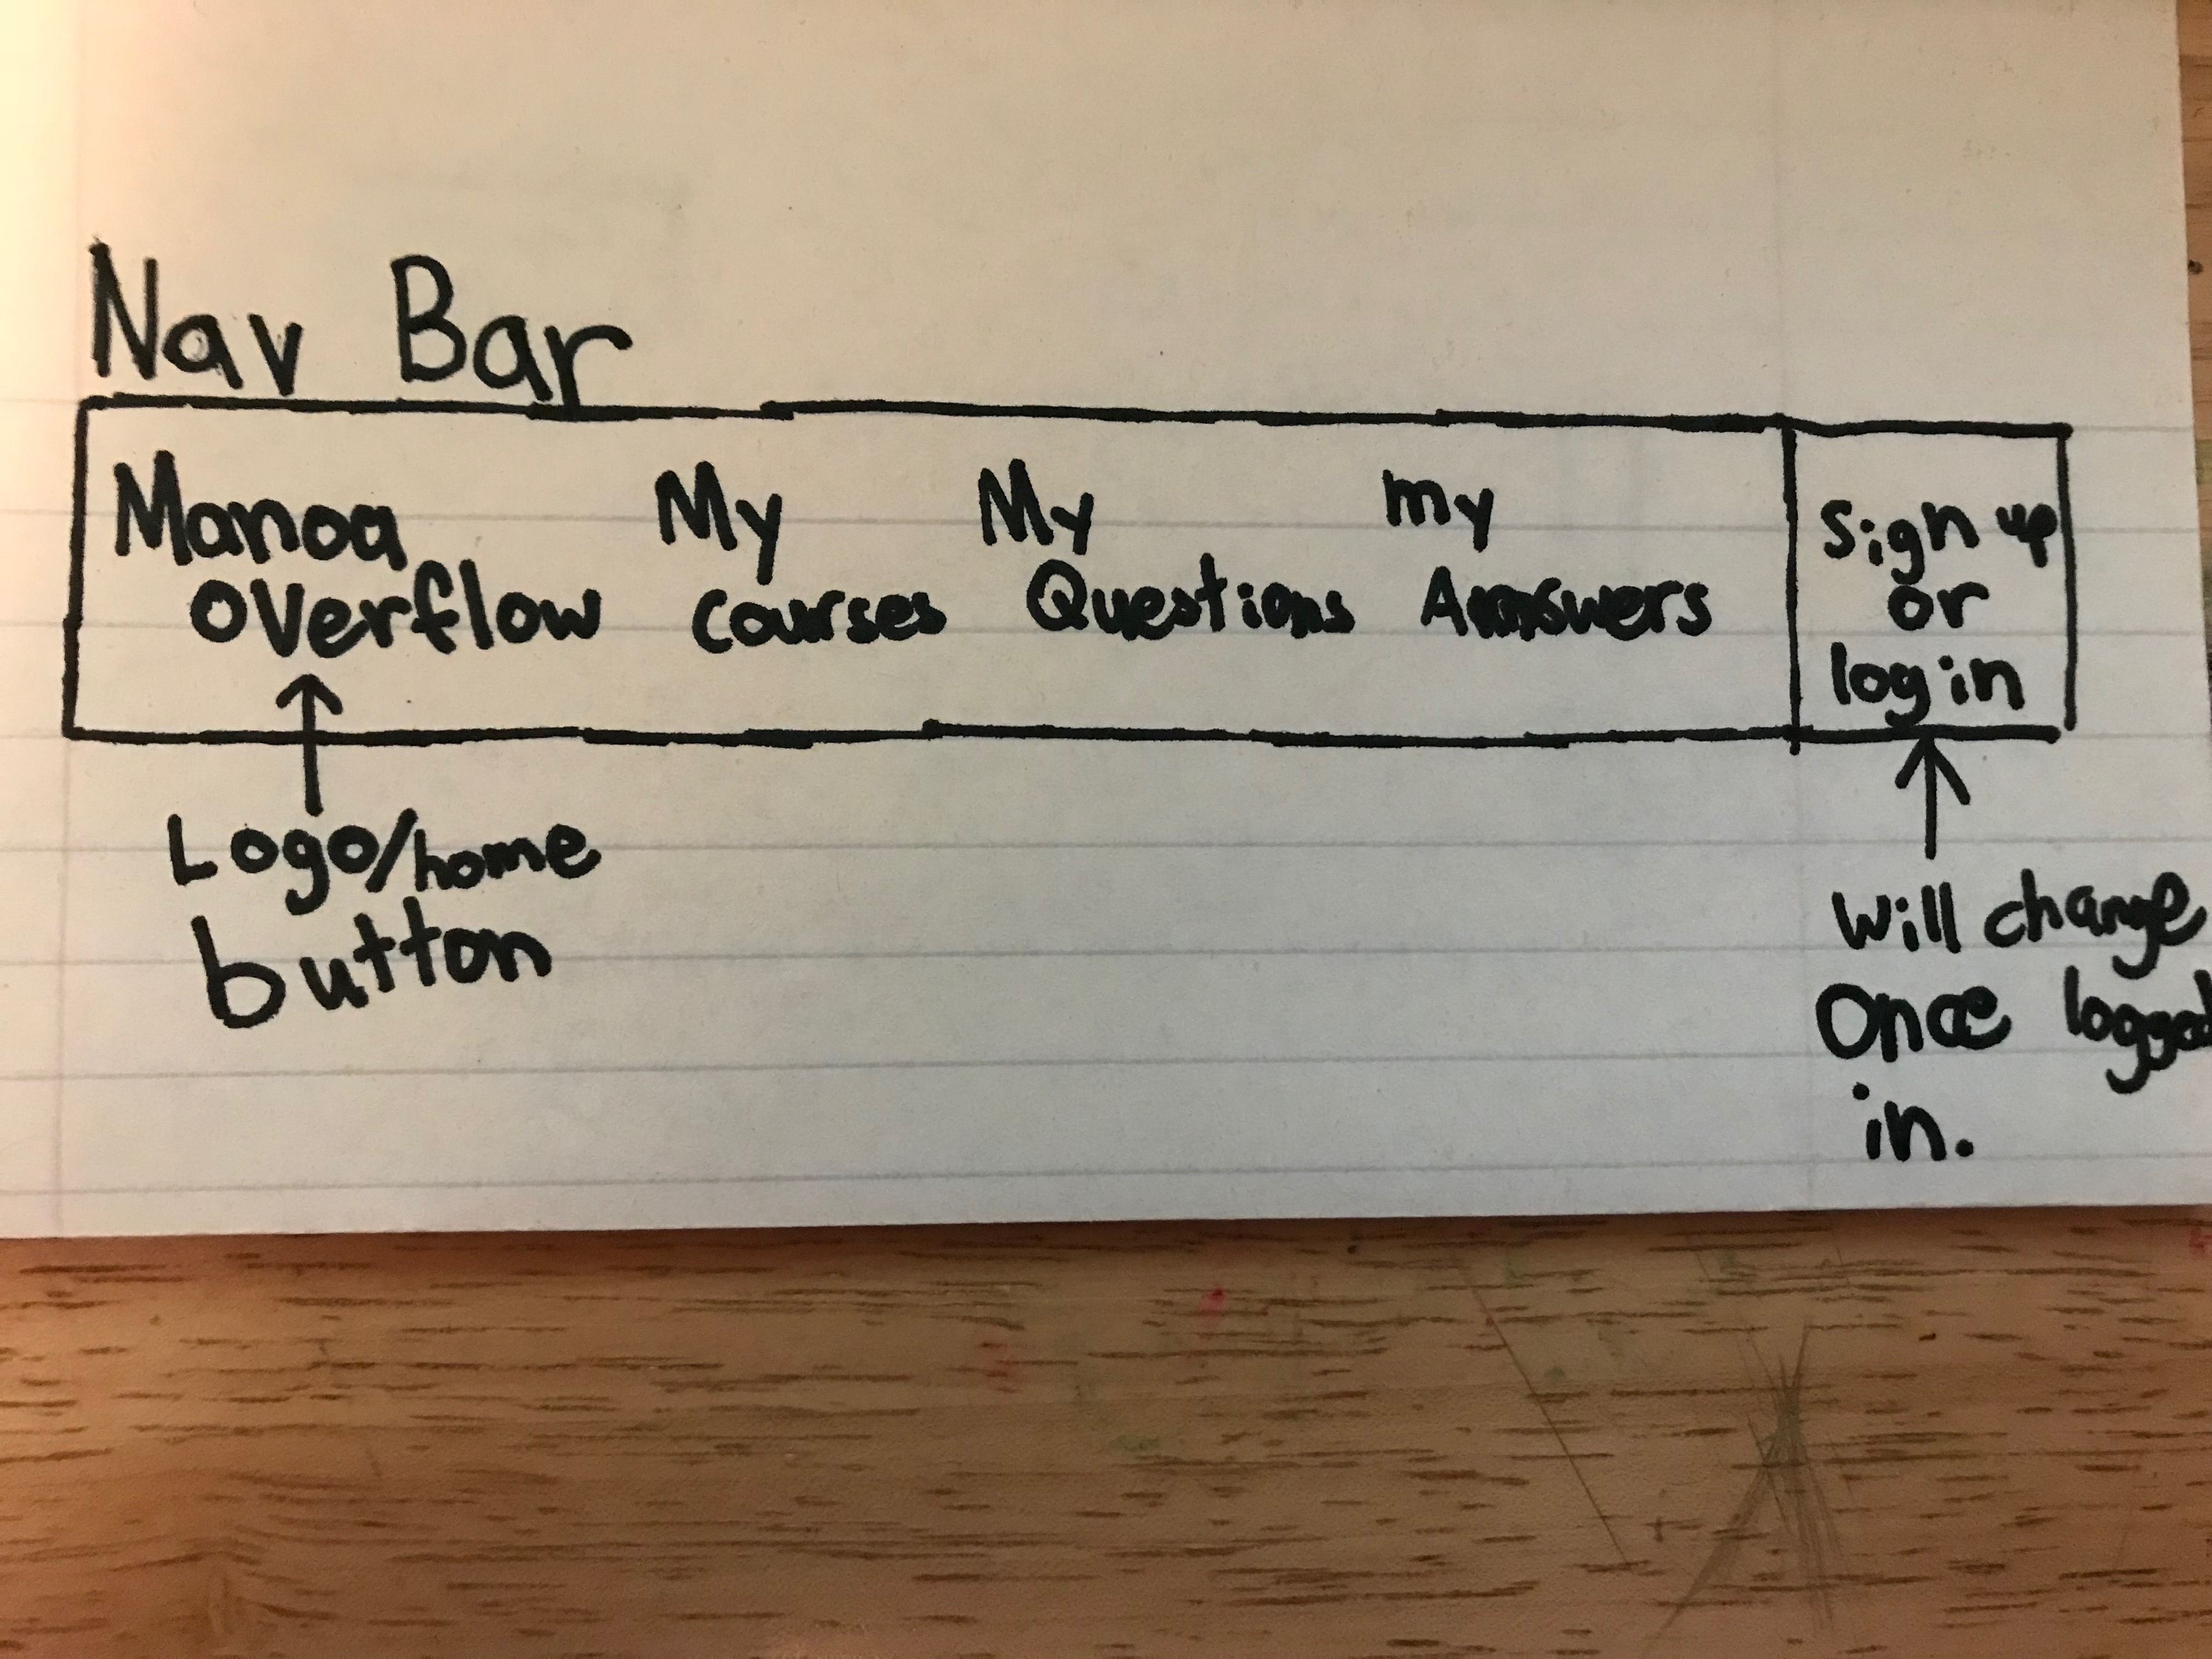 Nav Bar
Manoa
Overflow
My
courses
My
Questions
my
Answers
Sign up
or
log in
Logo/home
button
Will change
Once logged
in.